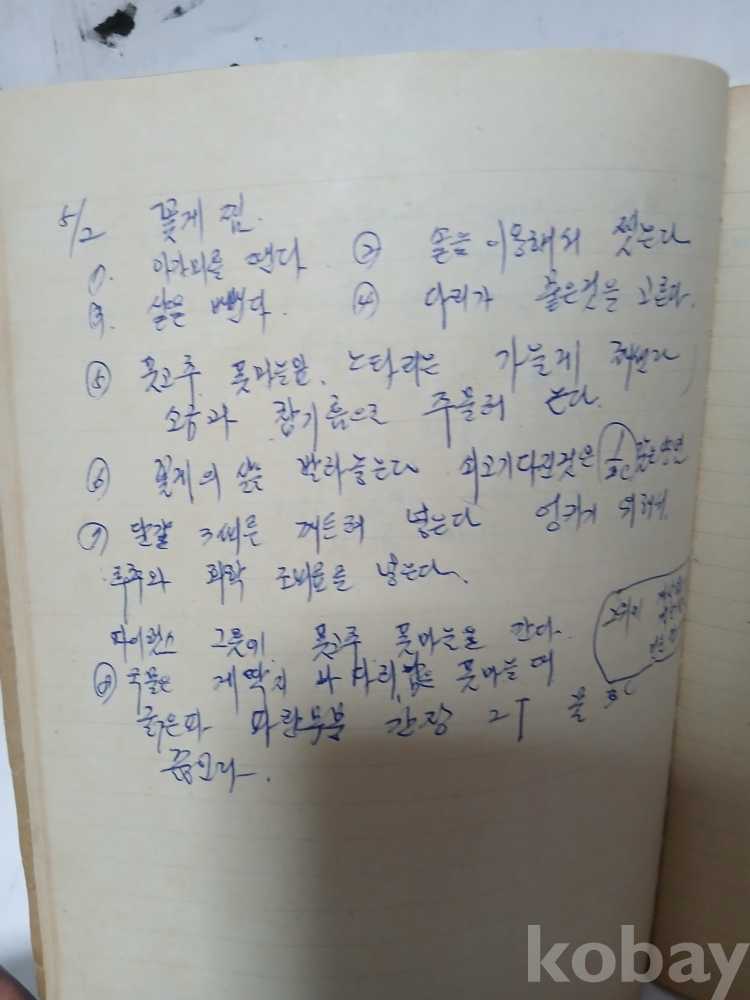 5/2 꽃게 찜.
①. 아가미를 뗀다 ② 솔을 이용해서 씻는다
③. 살을 뺀다. ④ 다리가 좋은것을 고른다.
⑤ 풋고추 풋마늘잎. 느타리는 가늘게
소금과 참기름으로 주물러 논다.
⑥ 꽃게의 살을 발라놓는다 쇠고기다진것은
⑦ 달걀 3개를 깨트려 넣는다 엉키기 위해서.
후추와 화학 조미료를 넣는다.
파이렉스 그릇에 풋고추 풋마늘을 깐다.
⑧ 국물은 게딱지 와 다리 풋마늘 대
굵은파 파란부분 간장 2T 물 3C
끓인다.
kobay